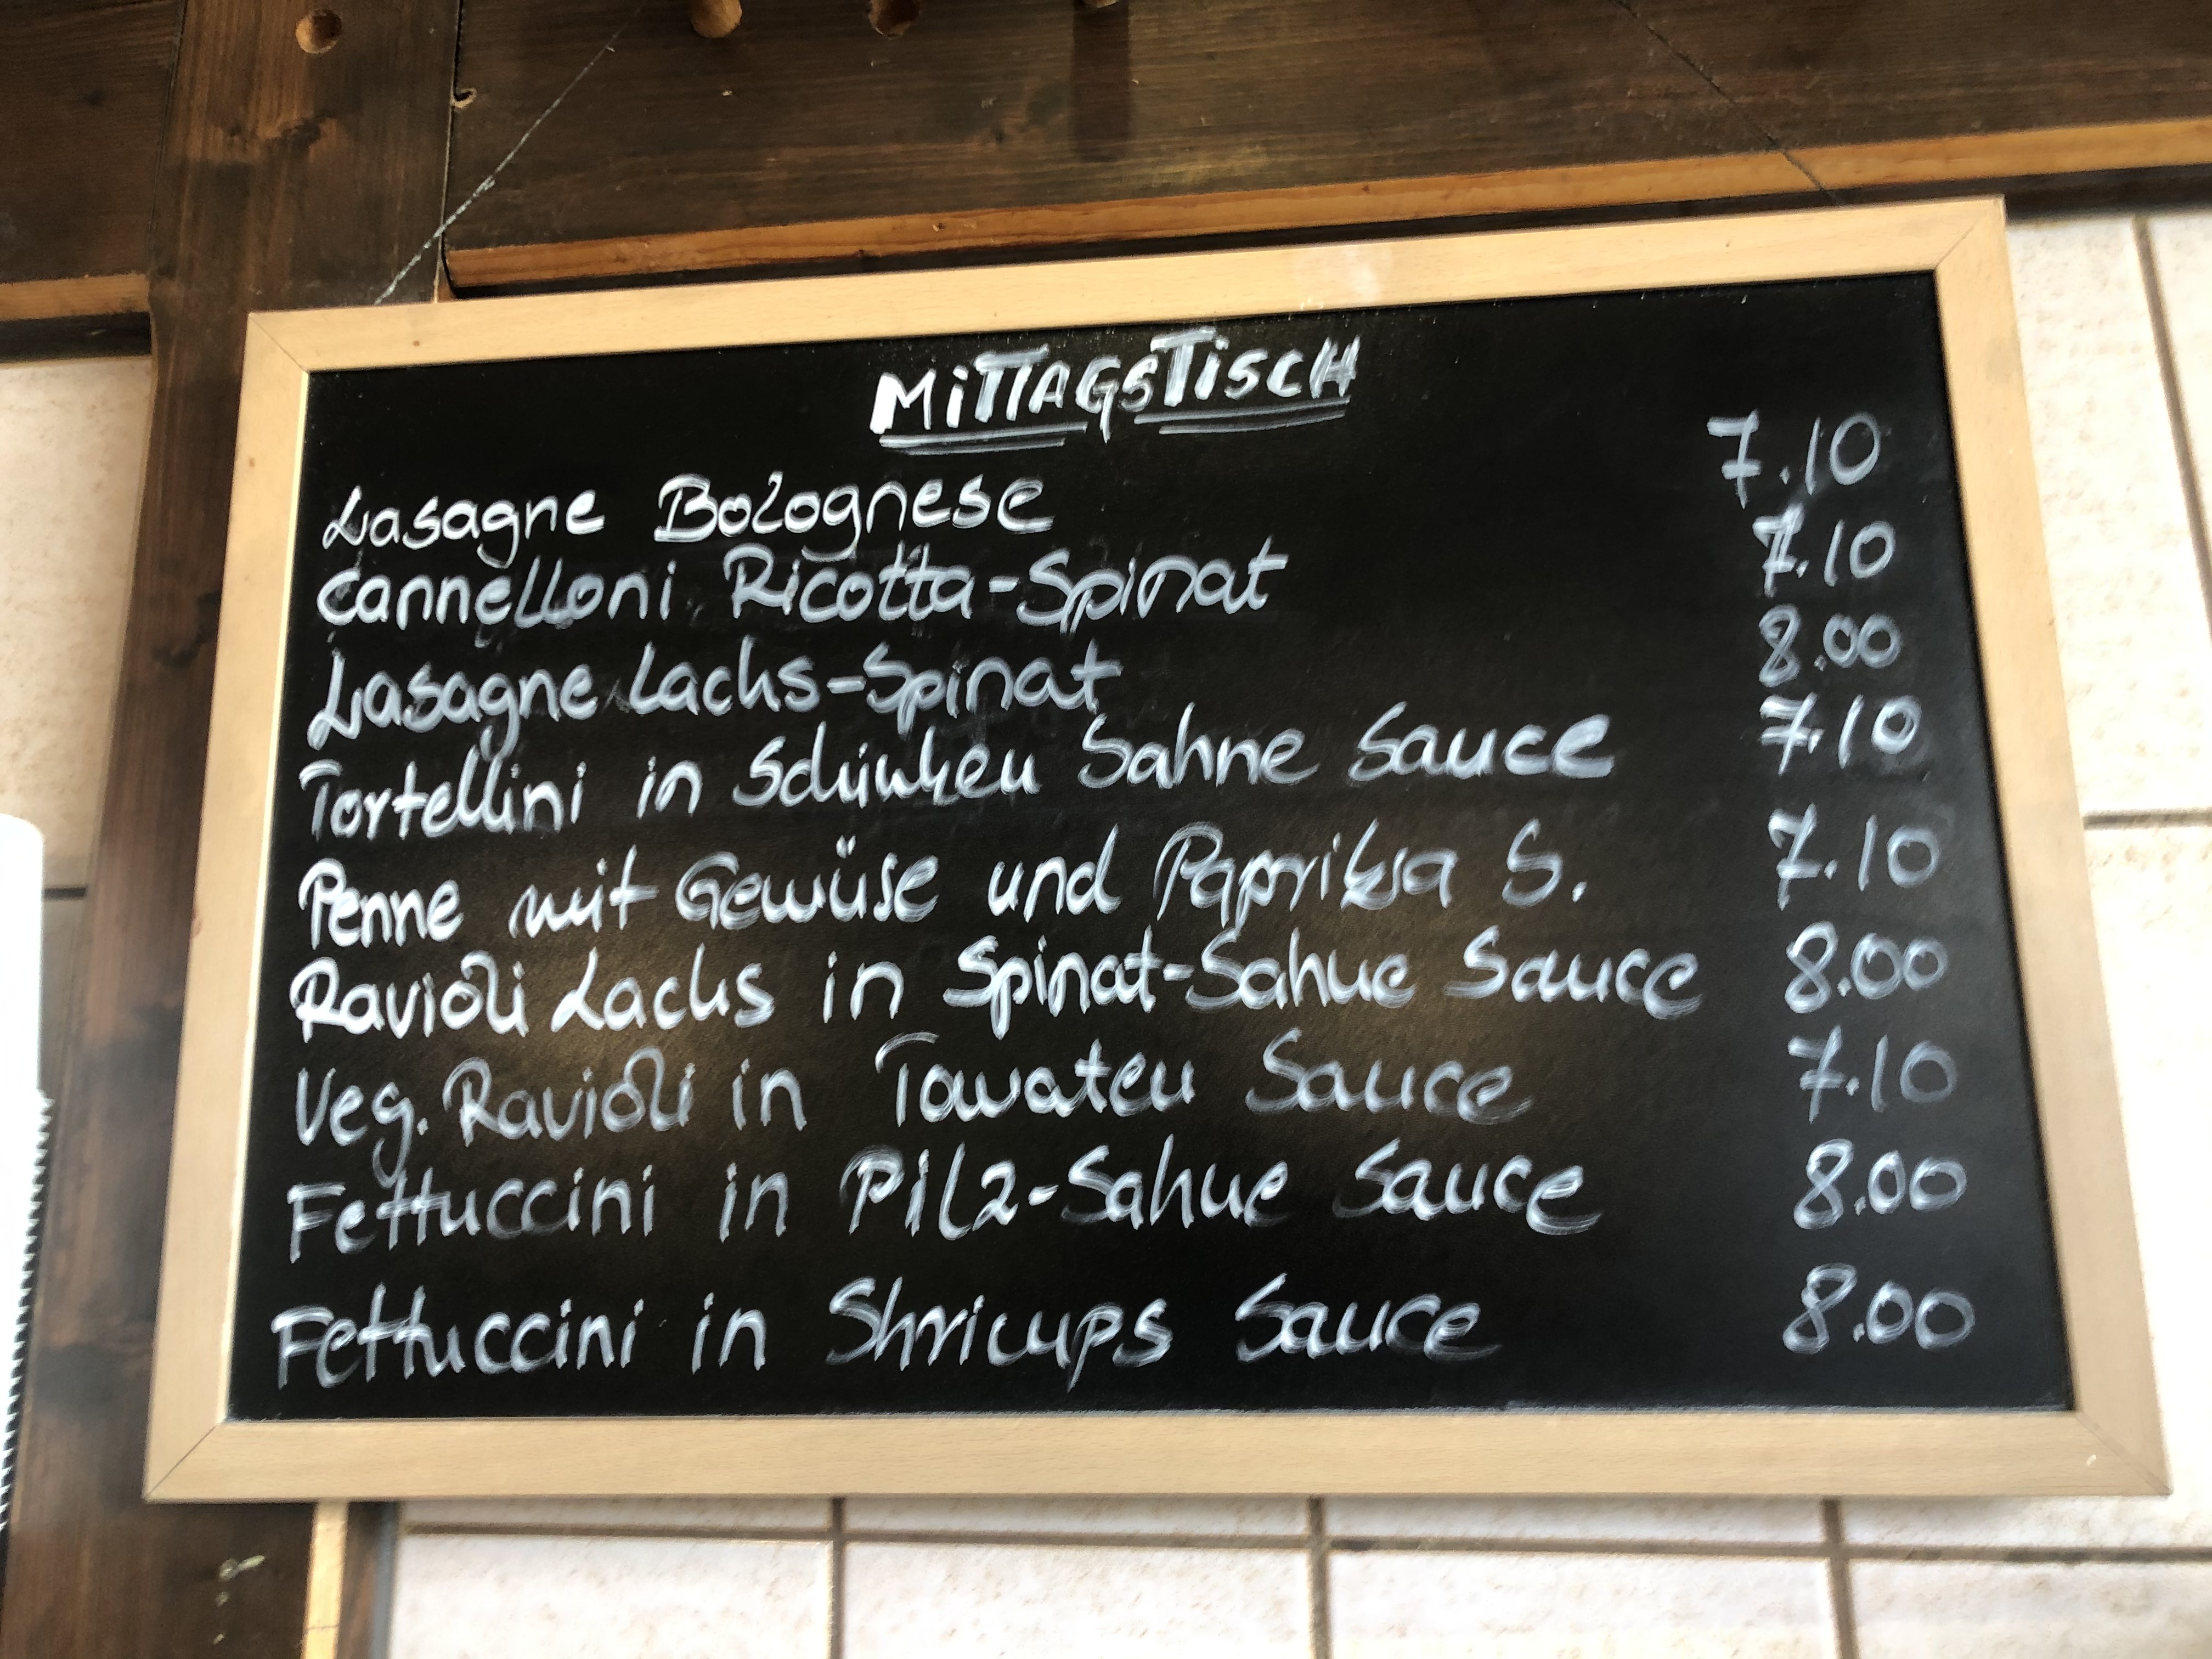 MiTTAGSTiSCH
Lasagne Bolognese 7.10
Cannelloni Ricotta-Spinat 7.10
Lasagne Lachs-Spinat 8.00
Tortellini in Schinken Sahne Sauce 7.10
Penne mit Gewüse und Paprika S. 7.10
Ravioli Lachs in Spinat-Sahne Sauce 8.00
Veg. Ravioli in Tomaten Sauce 7.10
Fettuccini in Pilz-Sahne Sauce 8.00
Fettuccini in Shrimps Sauce 8.00